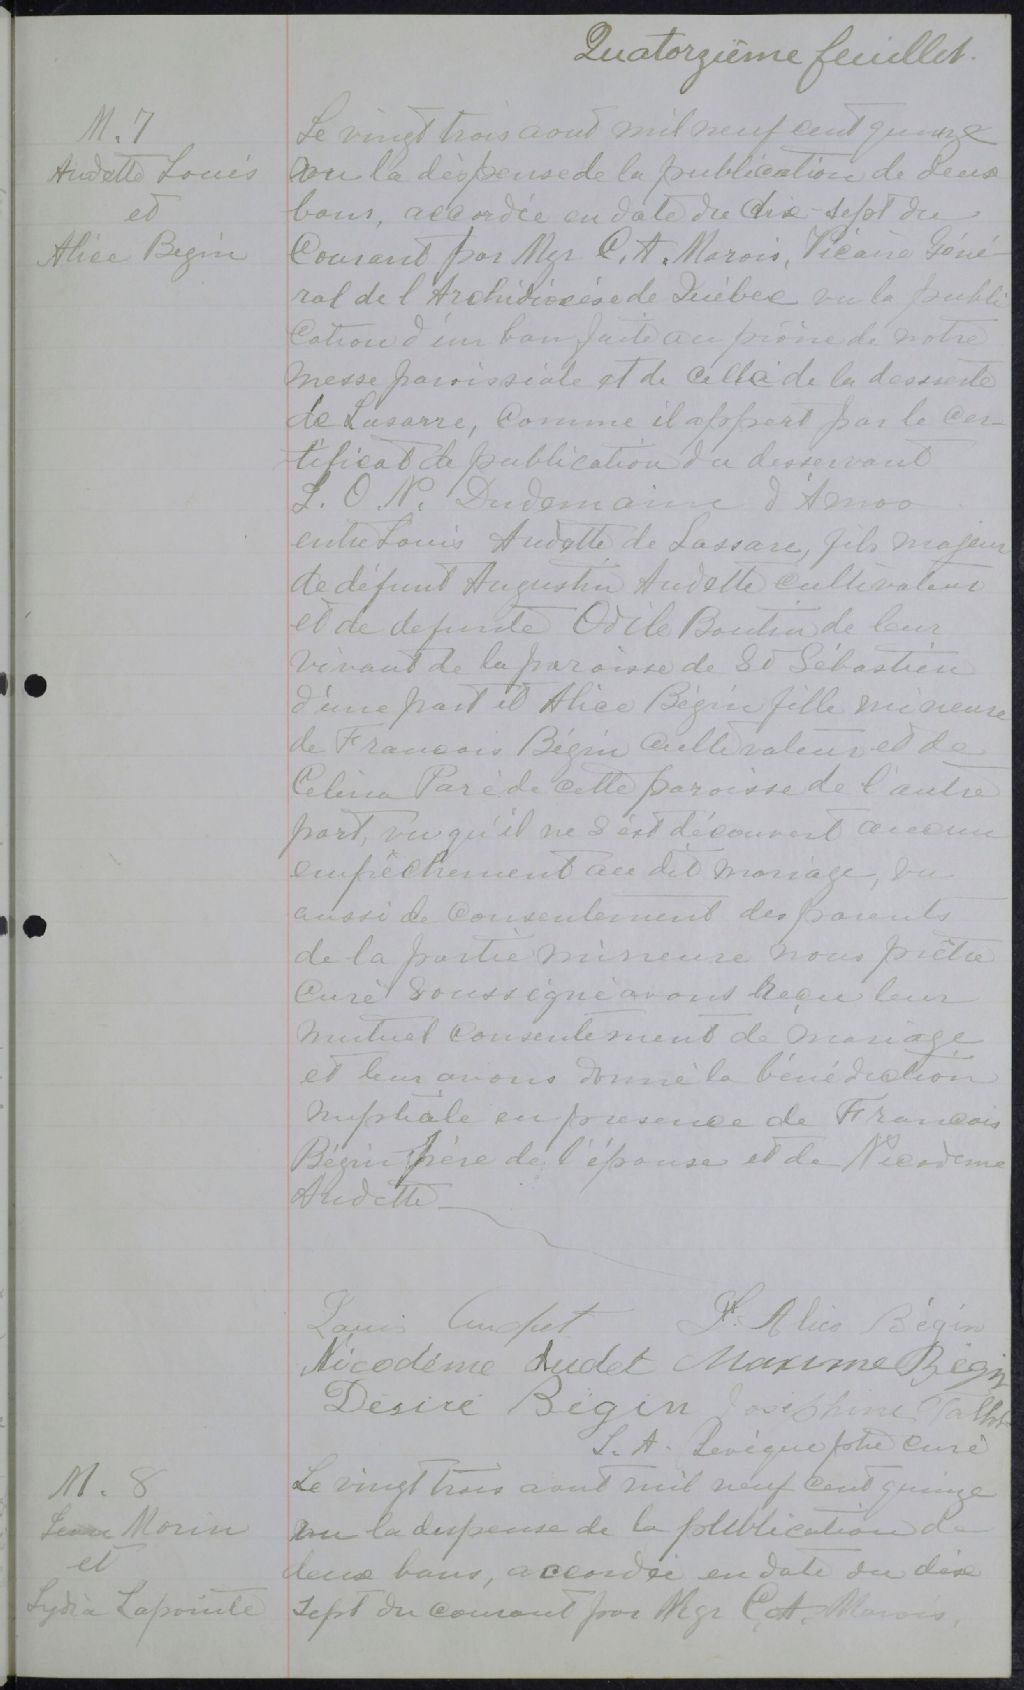 Quatorzième feuillet.
M. 7
Audette Louis
et
Alice Begin
Le vingt trois aout mil neuf cent quinze
vu la dispense de la publication de deux
bans, accordée en date du dix-sept du
Courant par Mgr C. A. Marois, Vicaire Géné-
ral de l'Archidiocèse de Québec vu la publi
cation d'un ban faite au prône de notre
messe paroissiale et de celle de la desserte
de Lasarre, Comme il appert par le Cer-
tificat de publication du desservant
J. O. V. Dudemaine d'Amos
entre Louis Audette de Lassare, fils majeur
de défunt Augustin Audette cultivateur
et de defunte Odile Boutin de leur
vivant de la paroisse de St Sébastien
d'une part et Alice Bégin fille mineure
de Francois Bégin Cultivateur et de
Celina Paré de cette paroisse de l'autre
part, vu qu'il ne s'est découvert aucun
empêchement au dit mariage, vu
aussi le Consentement des parents
de la partie mineure nous prêtre
Curé soussigné avons reçu leur
mutuel consentement de mariage
et leur avons donné la bénédiction
nuptiale en presence de Francois
Bégin père de l'épouse et de Nicodème
Audette
Louis Audet Alice Bégin
Nicodéme Audet Maxime Bégin
Désiré Bégin Joséphine
L. A. Levêque ptre curé
M. 8
Morin
et
Lydia Lapointe
Le vingt trois aout mil neuf cent quinze
vu la dispense de la publication de
deux bans, accordée en date du dix
sept du courant par Mgr C. A. Marois,